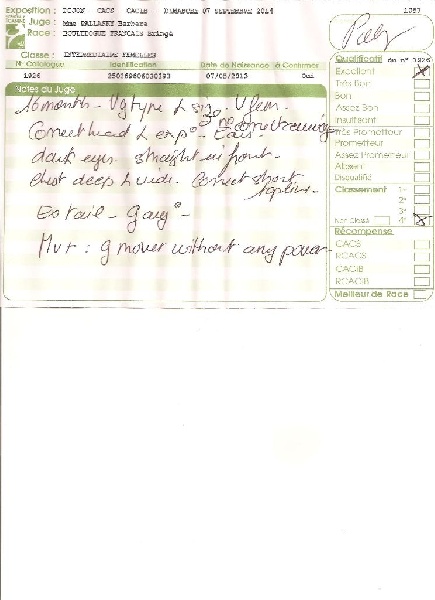 Exposition : DIJON CACS CACIB DIMANCHE 07 SEPTEMBRE 2014 1057
Juge : Mme DALLASKY Barbara
Race : BOULEDOGUE FRANCAIS Bringé
Classe : INTERMEDIAIRE FEMELLES
N° Catalogue Identification Date de Naissance à Confirmer
1926 250269606030393 07/05/2013 Oui
Notes du Juge
16 months - Vg type & size. V fem.
Correct head & exp° - Ears
dark eyes. straight in front -
chest deep & wide. Correct short
topline.
Ex tail - Gang° -
Mvt : g mover without any power -
Qualificatif du n° 1926
Excellent X
Très Bon
Bon
Assez Bon
Insuffisant
Très Prometteur
Prometteur
Assez Prometteur
Absent
Disqualifié
Classement 1°
2°
3°
Non Classé 4° X
Récompense
CACS
RCACS
CACIB
RCACIB
Meilleur de Race